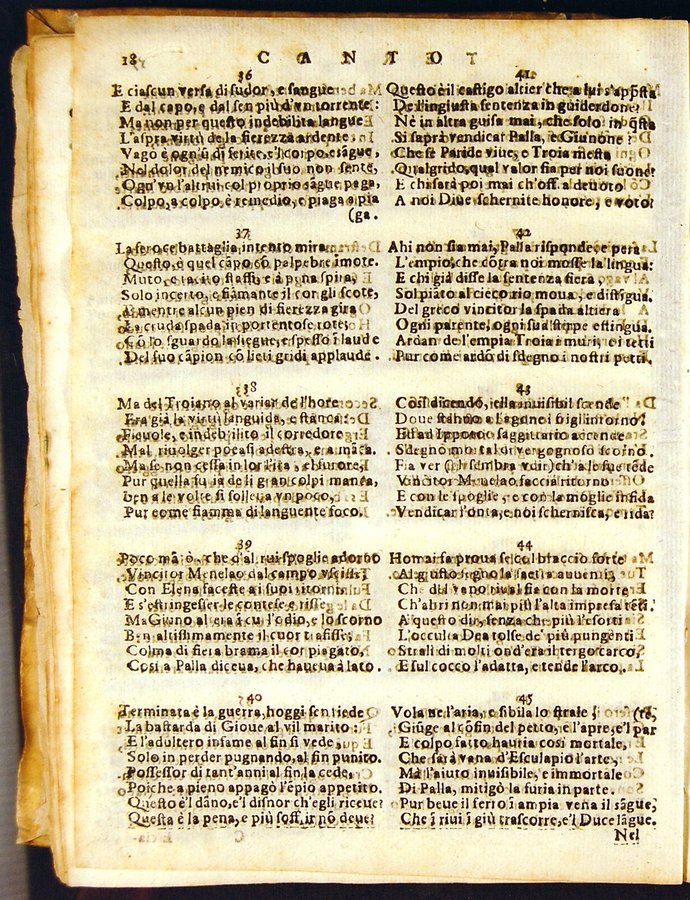 18 CANTO
36
E ciascun versa di sudor, e sangue
E dal capo, e dal sen più d'vn torrente:
Ma non per questo indebilita langue
L'aspra virtù de la fierezza ardente:
Vago è ogn'ũ di ferite, e'l corpo esãgue,
Nel dolor del nemico il suo non sente,
Ogn'vo l'altrui col proprio sãgue paga,
Colpo, a colpo, è remedio, e piaga a pia
(ga.
37
La feroce battaglia intento mira
Questo, e quel cãpo cõ palpebre imote.
Muto, e tacito stassi, e à pena spira,
Solo incerto, e fiãmante il cor gli scote,
E mentre alcun pien di fierezza gira
La cruda spada in portentose rote;
Cõ lo sguardo la siegue, e spesso ĩ laude
Del suo cãpion cõ lieti gridi applaude.
38
Ma del Troiano al variar de l'hore
Era già la virtù languida, e stanca:
Fieuole, e indebilito il corridore
Mal riuolger poteasi a destra, e a mãca.
Ma se non cessa in lor l'ira, e'l furore,
Pur quella furia de li gran colpi manca,
ben a le volte si solleua vn poco,
Pur come fiamma di languente foco.
39
Poco mãcò, che d'altrui spoglie adorno
Vincitor Menelao dal campo vscisse;
Con Elena faceste a i suoi ritorni
E s'estingesser le contese e risse
Ma Giuno al era ĩ cui l'odio, e lo scorno
Ben altissimamente il cuor trafisse,
Colma di fiera brama il cor piagato,
Così a Palla diceua, che haueua à lato.
40
Terminata è la guerra, hoggi sen riede
La bastarda di Gioue al vil marito:
E l'adultero insame al fin si vede,
Solo in perder pugnando, al fin punito.
Possessor di tant'anni al fin la cede,
Poiche a pieno appagò l'ẽpio appetito.
Questo è'l dãno, e'l disnor ch'egli riceue?
Questa è la pena, e più soffrir nõ deue?
41
Questo è il castigo altier che a lui s'appsta
De l'ingiusta sentenza in guiderdone?
Nè in altra guisa mai, che solo in qsta
Si saprà vendicar Palla, e Giunone?
Che se Paride viue, e Troia mesta
Qual grido, qual valor fia per noi suone?
E chi sarà poi mai ch'off. al deuoto
A noi Diue schernite honore, e voto?
42
Ahi non sia mai, Palla risponde, e pera
L'empio, che cõtra noi mosse la lingua:
E chi già disse la sentenza fiera,
Sol piato al cieco rio moua, e distĩgua.
Del greco vincitor la spada altiera
Ogni parente, ogni sua steppe estingua.
Ardan de l'empia Troia i muri, e i tetti
Pur come ardõ di sdegno i nostri petti.
43
Così dicendo, ella inuisibil scende
Doue stanno a Lagone i figli intorno:
Ed ad Ippotoo saggittario accende
Sdegno mortal or vergognoso scorno.
Fia ver (sì sẽmbra vdir) ch'a le sue tẽde
Vincitor Menelao faccia ritorno
E con le spoglie, e con la moglie infida
Vendicar l'onta, e noi schernisca, e rida?
44
Homai fa proua se col braccio forte
Al giusto segno la saetta auuenti,
Che del vano riual fia con la morte
Ch'abri non mai più l'alta impresa tẽti.
A questo dir, senza che più l'esorti
L'occulta Dea tolse de' più pungenti
Strali di molti ond'era il tergo carco,
E sul cocco l'adatta, e tende l'arco.
45
Vola ne l'aria, e sibila lo strale, (re,
Giũge al cõfin del petto, e l'apre, e'l par
E colpo fatto hauria così mortale,
Che sarà vana d'Esculapio l'arte,
Ma l'aiuto inuisibile, e immortale
Di Palla, mitigò la furia in parte.
Pur beue il ferro ĩ ampia vena il sãgue,
Che ĩ riui ĩ giù trascorre, e'l Duce lãgue.
Nel